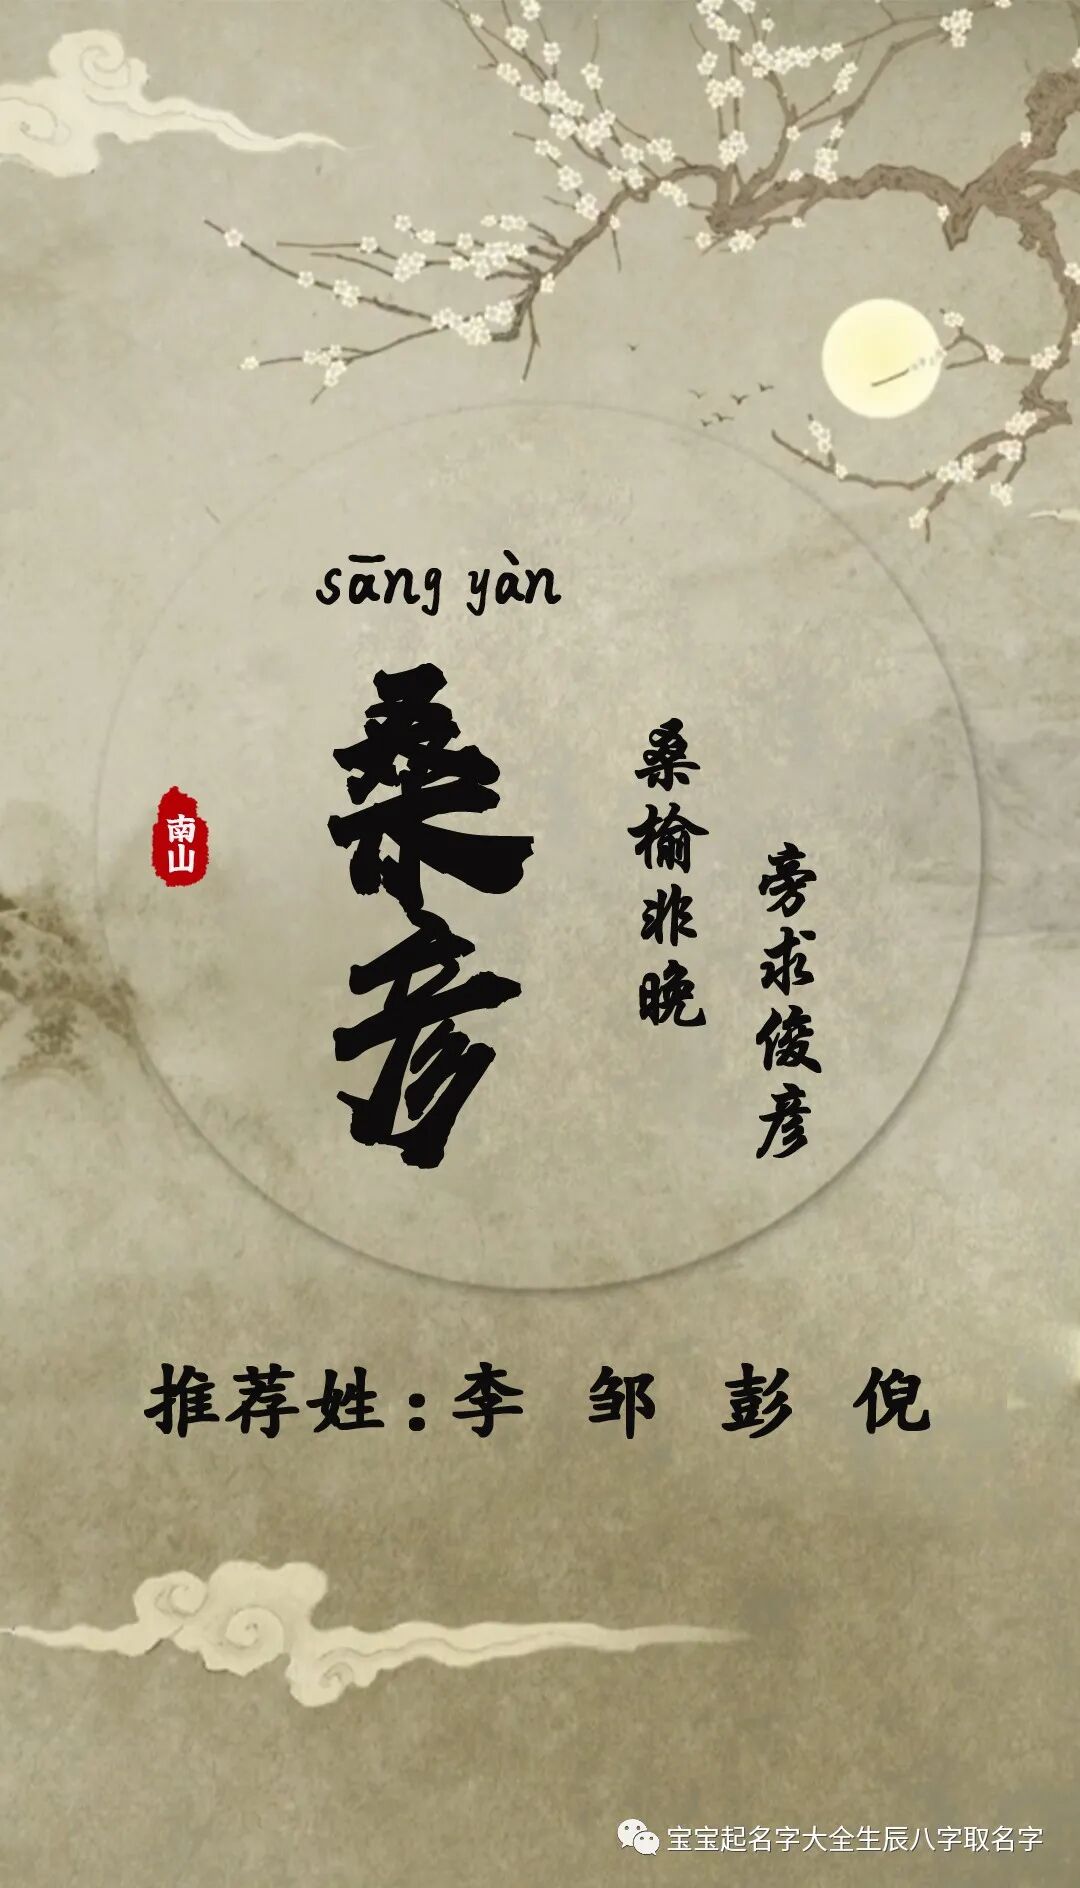 sāng yàn
桑彦
桑榆非晚
旁求俊彦
南山
推荐姓:李 邹 彭 倪
宝宝起名字大全生辰八字取名字